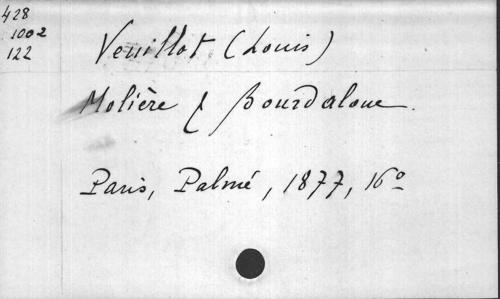 428
1002
122
Veuillot (Louis)
Molière & Bourdaloue.
Paris, Palmé, 1877, 16º